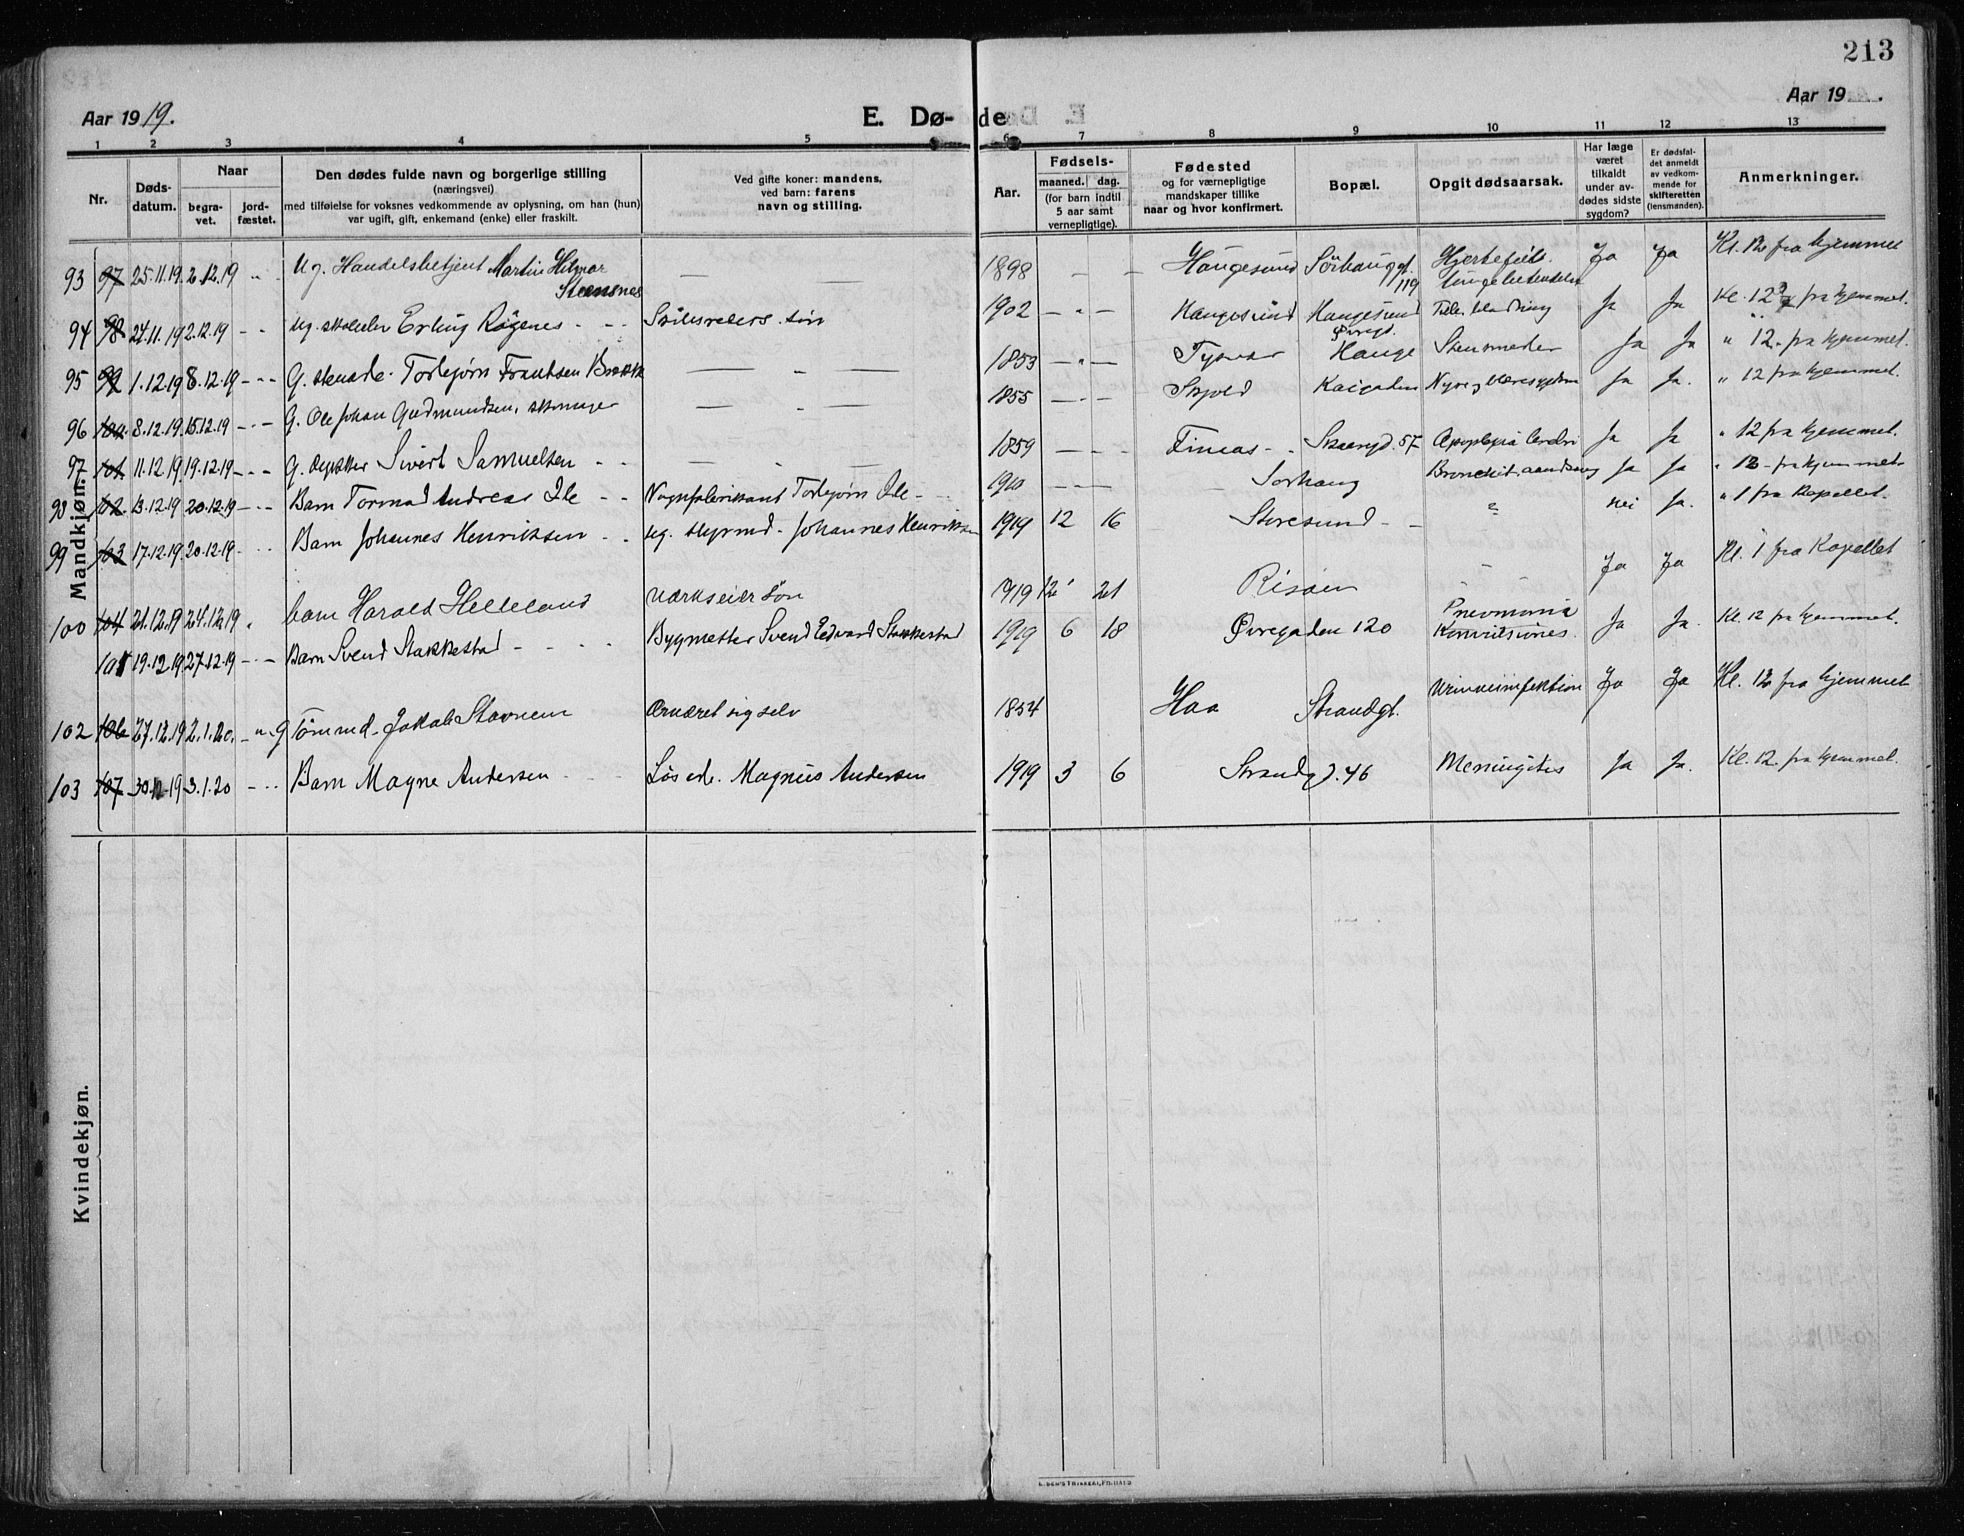 213
Aar 1919.
E. Dø-
de
Aar 19 .
1 2 3 4 5 6 7 8 9 10 11 12 13
Nr.
Døds-datum.
Naar
begra-vet.
jord-fæstet.
Den dødes fulde navn og borgerlige stilling
(næringsvei)
med tilføielse for voksnes vedkommende av oplysning, om han (hun)
var ugift, gift, enkemand (enke) eller fraskilt.
Ved gifte koner: mandens,
ved barn: farens
navn og stilling.
Aar.
Fødsels-
maaned. dag.
(for barn indtil
5 aar samt
vernepligtige).
Fødested
og for værnepligtige
mandskaper tillike
naar og hvor konfirmert.
Bopæl.
Opgit dødsaarsak.
Har læge
været
tilkaldt
under av-
dødes sidste
sygdom?
Er dødsfal-
det anmeldt
av vedkom-
mende for
skifteretten
(lensmanden).
Anmerkninger.
Mandkjøn.
93 97 25.11.19 2.12.19 Ug. Handelsbetjent Martin Hilmar Steensnes — 1898 — — Haugesund Sørhauggt. 119 Hjertefeil. Ja Ja Kl. 12 fra hjemmet
94 98 24.11.19 2.12.19 Ug. Erling Røgenes 1902 — — Haugesund Haugesund Ja Ja Kl. 12 fra hjemmet.
95 99 1.12.19 8.12.19 G. Torbjørn Frantsen — — 1853 — — Tysvær Øvregd. Hauge Ja Ja " 12 fra hjemmet.
96 100 8.12.19 15.12.19 G. Ole Johan Gudmundsen, — — 1855 — — Skjold Kaigaden Ja Ja. " 12 fra hjemmet.
97 101 11.12.19 19.12.19 G. Sivert Samuelsen — — 1859 — — Finnas 57 Apoplexia cerebri Ja Ja " 12 fra hjemmet.
98 102 13.12.19 20.12.19 Barn Tormod Andreas Ile Vognfabrikant Torbjørn Ile 1910 — — Sørhaug Ja Ja " 12 fra hjemmet
99 103 17.12.19 20.12.19 Barn Johannes Henriksen Ug. Styrmd. Johannes Henriksen 1919 12 16 Storesund ? Nei Ja. " 1 fra Kapellet.
100 104 21.12.19 24.12.19 barn Harald Helleland værkseier søn 1919 12 21 Risøen Ja Ja Kl. 1 fra Kapellet
105 19.12.19 27.12.19 Barn Svend Stakkestad Bygmester Svend Edvard Stakkestad 1919 6 18 Øvregaden 120 Pnevmonia Konvulsiones. Ja Ja. Kl. 12 fra hjemmet.
102 106 27.12.19 2.1.20. G Tømmd. Jakob Stavnem Ernæret sig selv 1854 Haa Strandgt. Urinveiinfektion Ja Ja Kl. 12 fra hjemmet
103 107 30.12.19 3.1.20 Barn Magne Andersen Løsarb. Magnus Andersen 1919 3 6 Strandgd. 46 Meningites Ja Ja. Kl. 12. fra hjemmet.
Kvindekjøn.